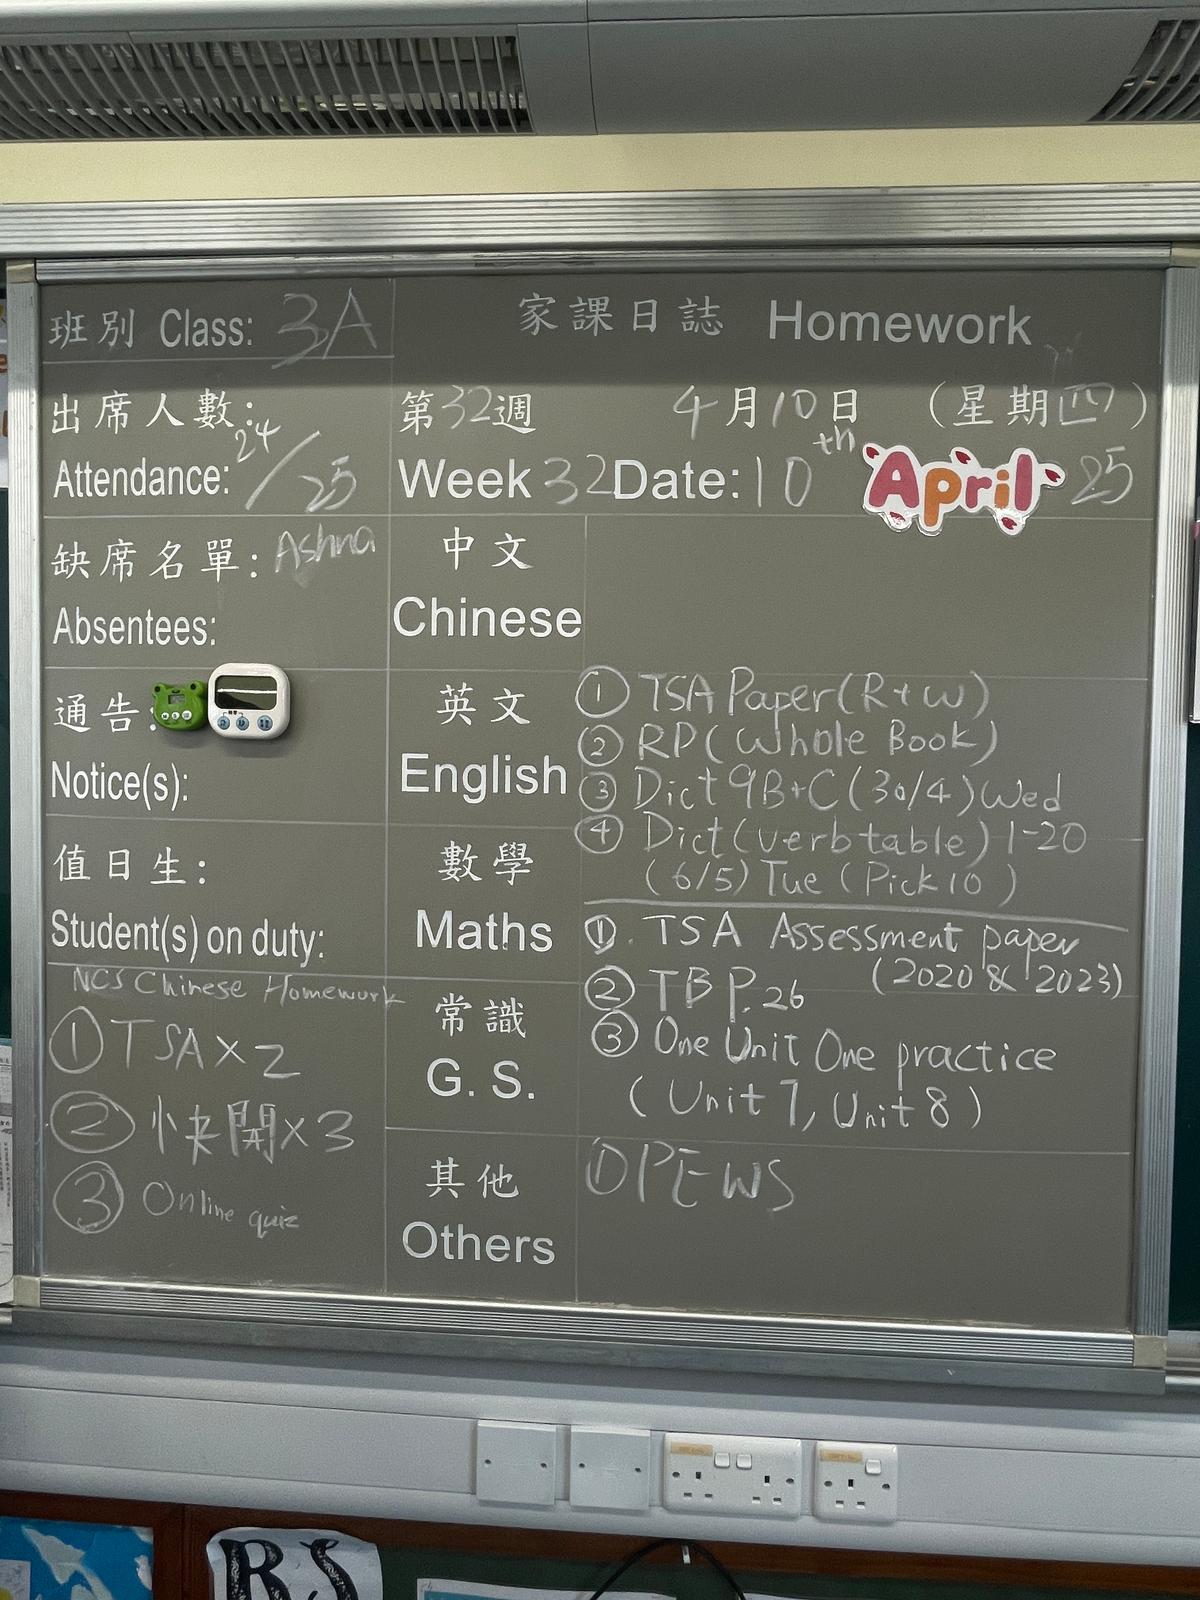 班別 Class: 3A
家課日誌 Homework
出席人數:
Attendance: 24/25
第32週
4月10日 (星期四)
Week 32 Date: 10th April 25
缺席名單: Ashna
Absentees:
中文
Chinese
通告:
Notice(s):
英文
English
① TSA Paper (R+W)
② RP (Whole Book)
③ Dict 9B+C (30/4) Wed
④ Dict (verb table) 1-20
(6/5) Tue (Pick 10)
值日生:
Student(s) on duty:
數學
Maths
①. TSA Assessment paper
(2020 & 2023)
② TB P.26
③ One Unit One practice
(Unit 7, Unit 8)
NCS Chinese Homework
① TSA x 2
② 快開x3
③ Online quiz
常識
G. S.
其他
Others
① PEWS
RS